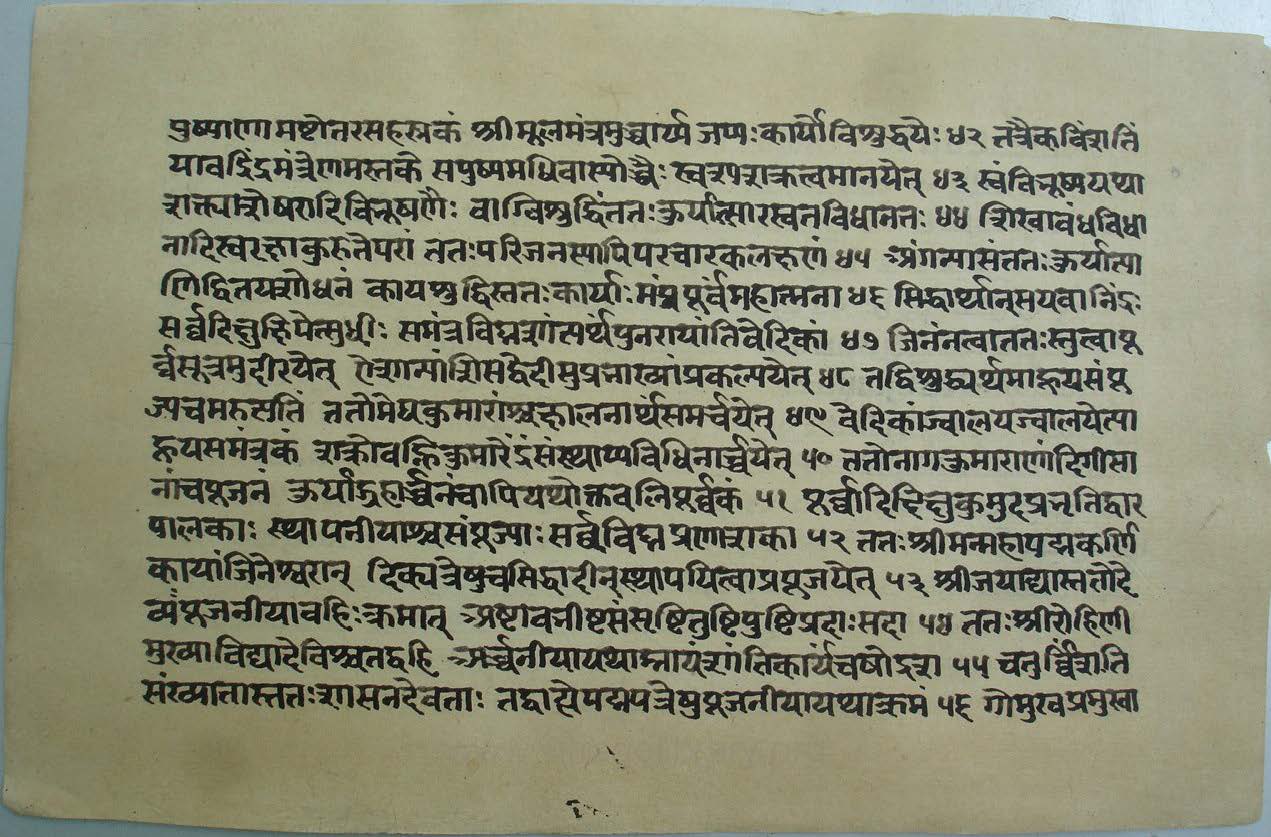 पुष्पाणामष्टोत्तरसहस्रकं श्रीमूलमंत्रमुच्चार्य्य जप्पः कार्यो विशुद्धयैः ४२ तत्रैकविंशतिं
यावदिंद्रमंत्रेणमस्तके सपुष्पमधिवास्योच्चैः स्वस्य शक्रत्वमानयेत् ४३ स्वं विभूष्य यथा
शक्त्या शेषरादिविभूषणैः वाग्विशुद्धिं ततः कुर्यात्सारस्वतविधानतः ४४ शिखाबंधविधा
नादिस्वरक्षा कुरुते परां ततः परिजनस्यापि परचारकलक्षणं ४५ अंगन्यासं ततः कुर्यात्पा
णिद्वितयशोधनं कायशुद्धिस्ततः कार्याः मंत्रपूर्वं महात्मना ४६ सिद्धार्थान्सयवानिंद्रः
सर्व्वदिक्षुक्षिपेत्सुधीः समंत्रविघ्नशांत्यर्थं पुनरायाति वेदिकां ४७ जिनं नत्वा ततः स्तुत्वा पू
र्व्वसूत्रमुदीरयेत् ऐशान्यां दिशि सद्वेदीमुप्रनाख्यां प्रकल्पयेत् ४८ तद्विशुद्ध्यर्थमाहूय संपू
ज्य च मरुत्पतिं ततो मेघकुमारांश्च क्षालनार्थं समर्चयेत् ४९ वेदिकांज्वालयज्वालयेत्पा
हूय समंत्रकं शक्रो वह्निकुमारेंद्रं संस्थाप्य विधिनार्च्चयेत् ५० ततो नागकुमाराणां दिगीसा
नां च पूजनं कुर्याद्ग्रहार्च्चनं चापि यथोक्तबलिपूर्व्वकं ५१ पूर्व्वादिदिक्षु कुमुदप्रभृतिद्वार
पालकाः स्थापनीयाश्च संपूज्याः सर्व्वविघ्नप्रणाशका ५२ ततः श्रीमन्महापद्मकर्णि
कायां जिनेश्वरान् दिक्पत्रेषु च सिद्धादीन् स्थापयित्वा प्रपूजयेत् ५३ श्रीजयाद्यास्ततो दे
व्यं पूजनीया बहिः क्रमात् अष्टावभीष्टसंसृष्टितुष्टिपुष्टिप्रदाः सदा ५४ ततः श्रीरोहिणी
मुख्या विद्यादेविश्च तद्बहि अर्च्चनीया यथाम्नायं शांतिकार्यं च षोडश ५५ चतुर्व्विंशति
संख्यातास्ततः शासनदेवताः तद्बाह्ये पद्मपत्रेषु पूजनीया यथाक्रमं ५६ गोमुखप्रमुखा